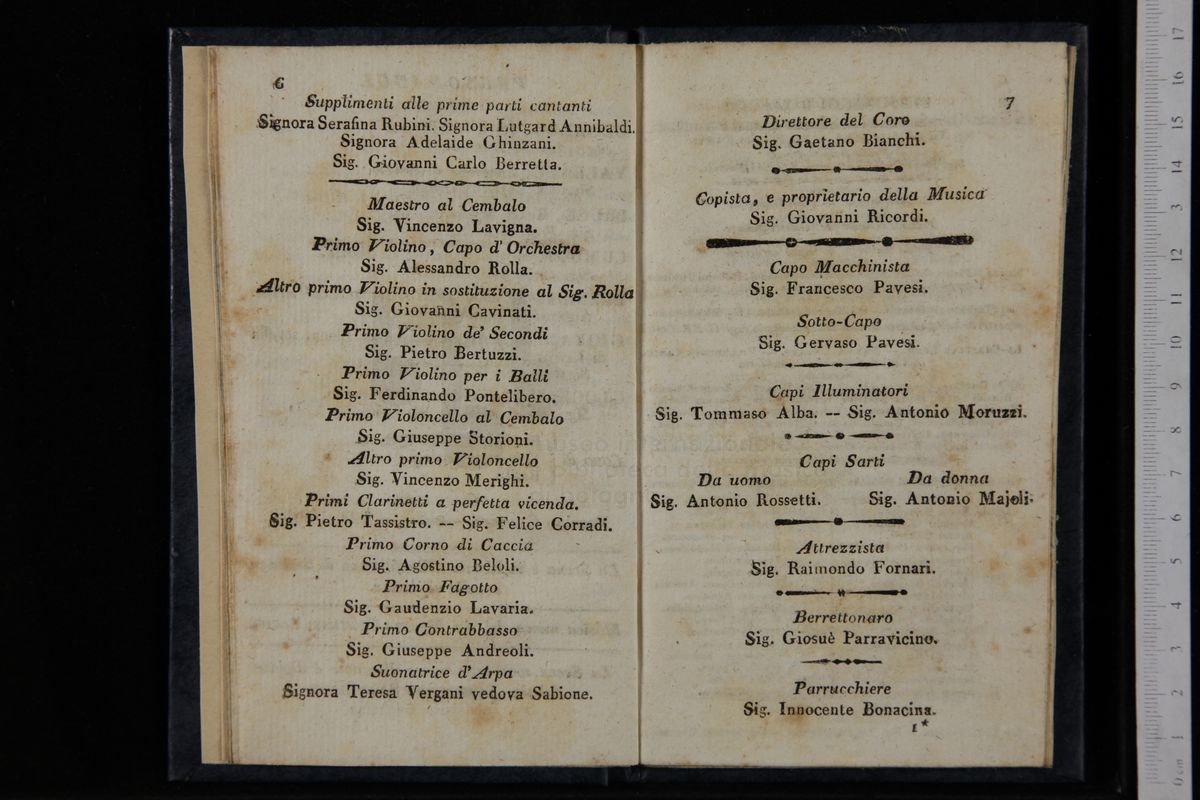 6
Supplimenti alle prime parti cantanti
Signora Serafina Rubini. Signora Lutgard Annibaldi.
Signora Adelaide Ghinzani.
Sig. Giovanni Carlo Berretta.
Maestro al Cembalo
Sig. Vincenzo Lavigna.
Primo Violino, Capo d'Orchestra
Sig. Alessandro Rolla.
Altro primo Violino in sostituzione al Sig. Rolla
Sig. Giovanni Cavinati.
Primo Violino de' Secondi
Sig. Pietro Bertuzzi.
Primo Violino per i Balli
Sig. Ferdinando Pontelibero.
Primo Violoncello al Cembalo
Sig. Giuseppe Storioni.
Altro primo Violoncello
Sig. Vincenzo Merighi.
Primi Clarinetti a perfetta vicenda.
Sig. Pietro Tassistro. -- Sig. Felice Corradi.
Primo Corno di Caccia
Sig. Agostino Beloli.
Primo Fagotto
Sig. Gaudenzio Lavaria.
Primo Contrabbasso
Sig. Giuseppe Andreoli.
Suonatrice d'Arpa
Signora Teresa Vergani vedova Sabione.
7
Direttore del Coro
Sig. Gaetano Bianchi.
Copista, e proprietario della Musica
Sig. Giovanni Ricordi.
Capo Macchinista
Sig. Francesco Pavesi.
Sotto-Capo
Sig. Gervaso Pavesi.
Capi Illuminatori
Sig. Tommaso Alba. -- Sig. Antonio Moruzzi.
Capi Sarti
Da uomo Da donna
Sig. Antonio Rossetti. Sig. Antonio Majoli.
Attrezzista
Sig. Raimondo Fornari.
Berrettonaro
Sig. Giosuè Parravicino.
Parrucchiere
Sig. Innocente Bonacina.
1*
17
16
15
14
13
12
11
10
9
8
7
6
5
4
3
2
1
0 cm